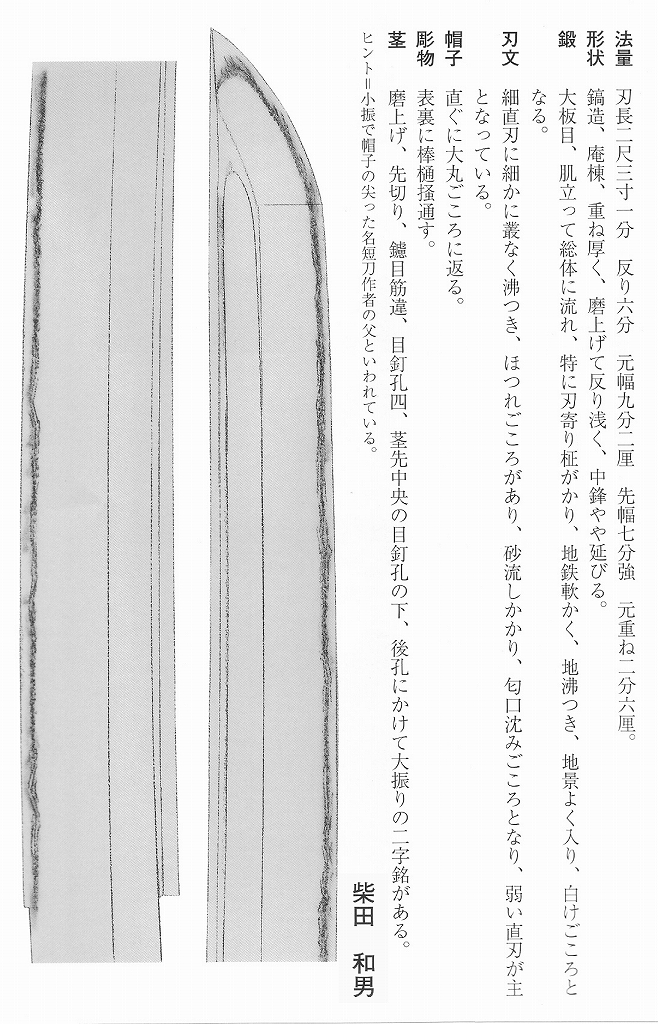 法量　刃長二尺三寸一分　反り六分　元幅九分二厘　先幅七分強　元重ね二分六厘。
形状　鎬造、庵棟、重ね厚く、磨上げて反り浅く、中鋒やや延びる。
鍛　大板目、肌立って総体に流れ、特に刃寄り柾がかり、地鉄軟かく、地沸つき、地景よく入り、白けごころと
なる。
刃文　細直刃に細かに叢なく沸つき、ほつれごころがあり、砂流しかかり、匂口沈みごころとなり、弱い直刃が主
となっている。
帽子　直ぐに大丸ごころに返る。
彫物　表裏に棒樋掻通す。
茎　磨上げ、先切り、鑢目筋違、目釘孔四、茎先中央の目釘孔の下、後孔にかけて大振りの二字銘がある。
ヒント＝小振で帽子の尖った名短刀作者の父といわれている。
柴田　和男